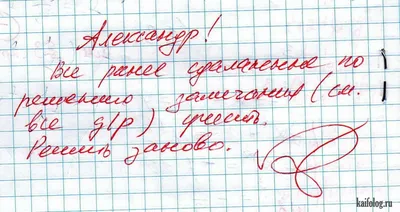 Александр!
Все ранее сделанные по
решению замечания (см.
все д/р) учесть.
Решить заново.
kaifolog.ru